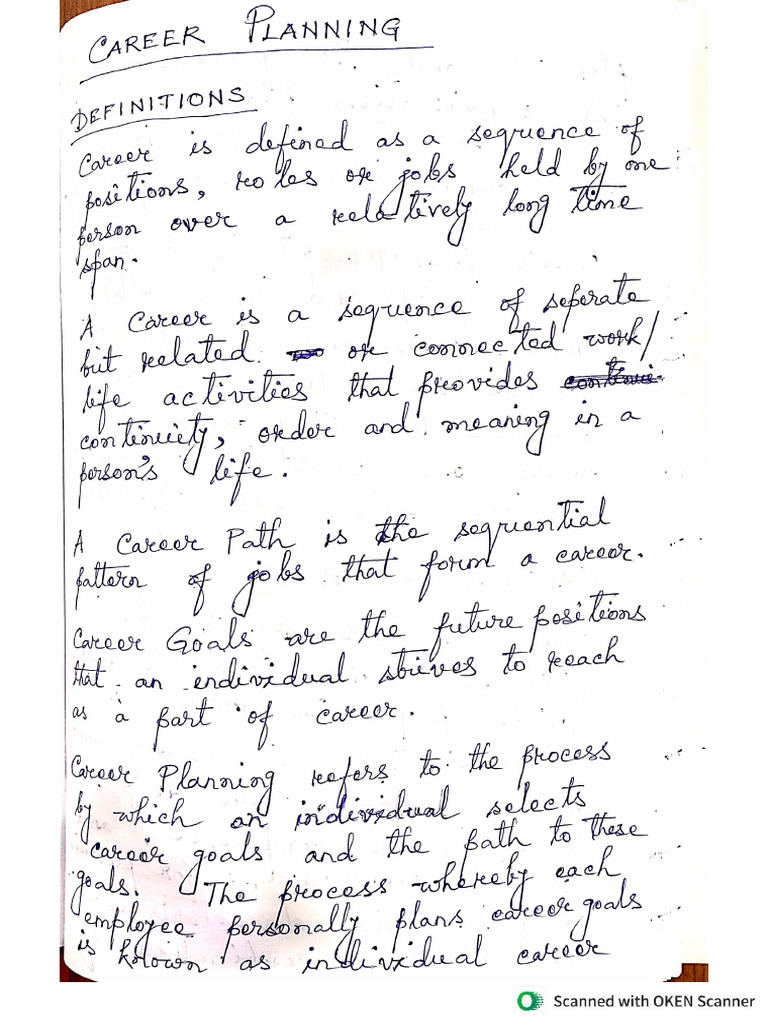 CAREER PLANNING
DEFINITIONS
Career is defined as a sequence of
positions, roles or jobs held by one
person over a relatively long time
span.
A Career is a sequence of seperate
but related or connected work/
life activities that provides
continuiety, order and meaning in a
person's life.
A Career Path is the sequential
pattern of jobs that form a career.
Career Goals are the future positions
that an individual strives to reach
as a part of career.
Career Planning refers to the process
by which an individual selects
career goals and the path to these
goals. The process whereby each
employee personally plans career goals
is known as individual career
Scanned with OKEN Scanner